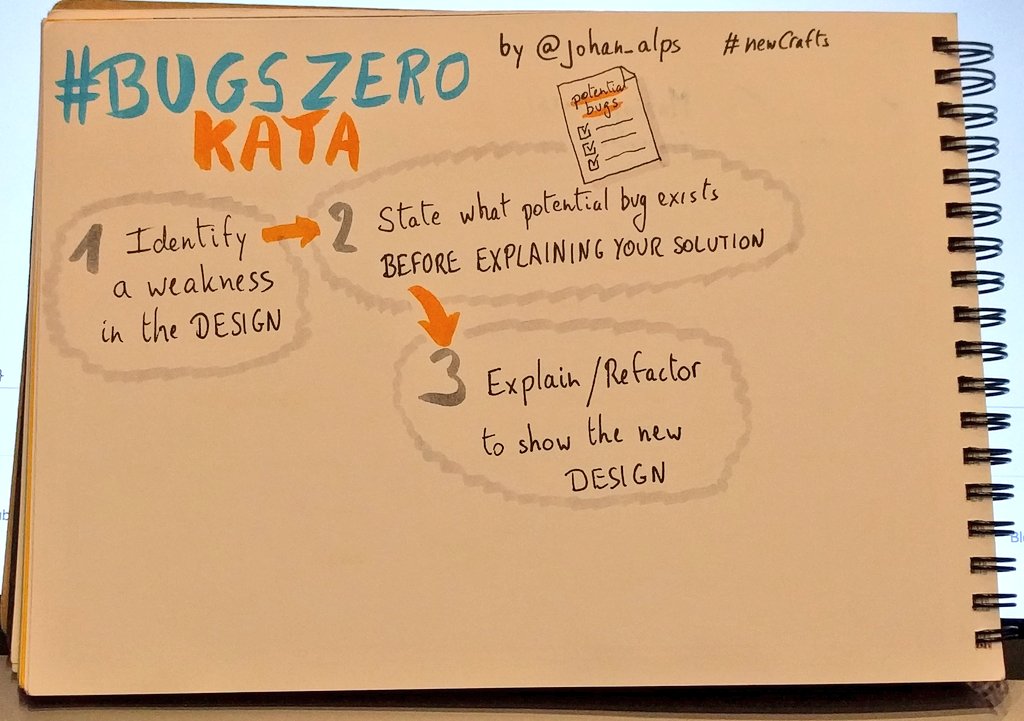 #BUGSZERO
KATA
by @johan_alps #newCrafts
potential
bugs
1 Identify
a weakness
in the DESIGN
2 State what potential bug exists
BEFORE EXPLAINING YOUR SOLUTION
3 Explain/Refactor
to show the new
DESIGN